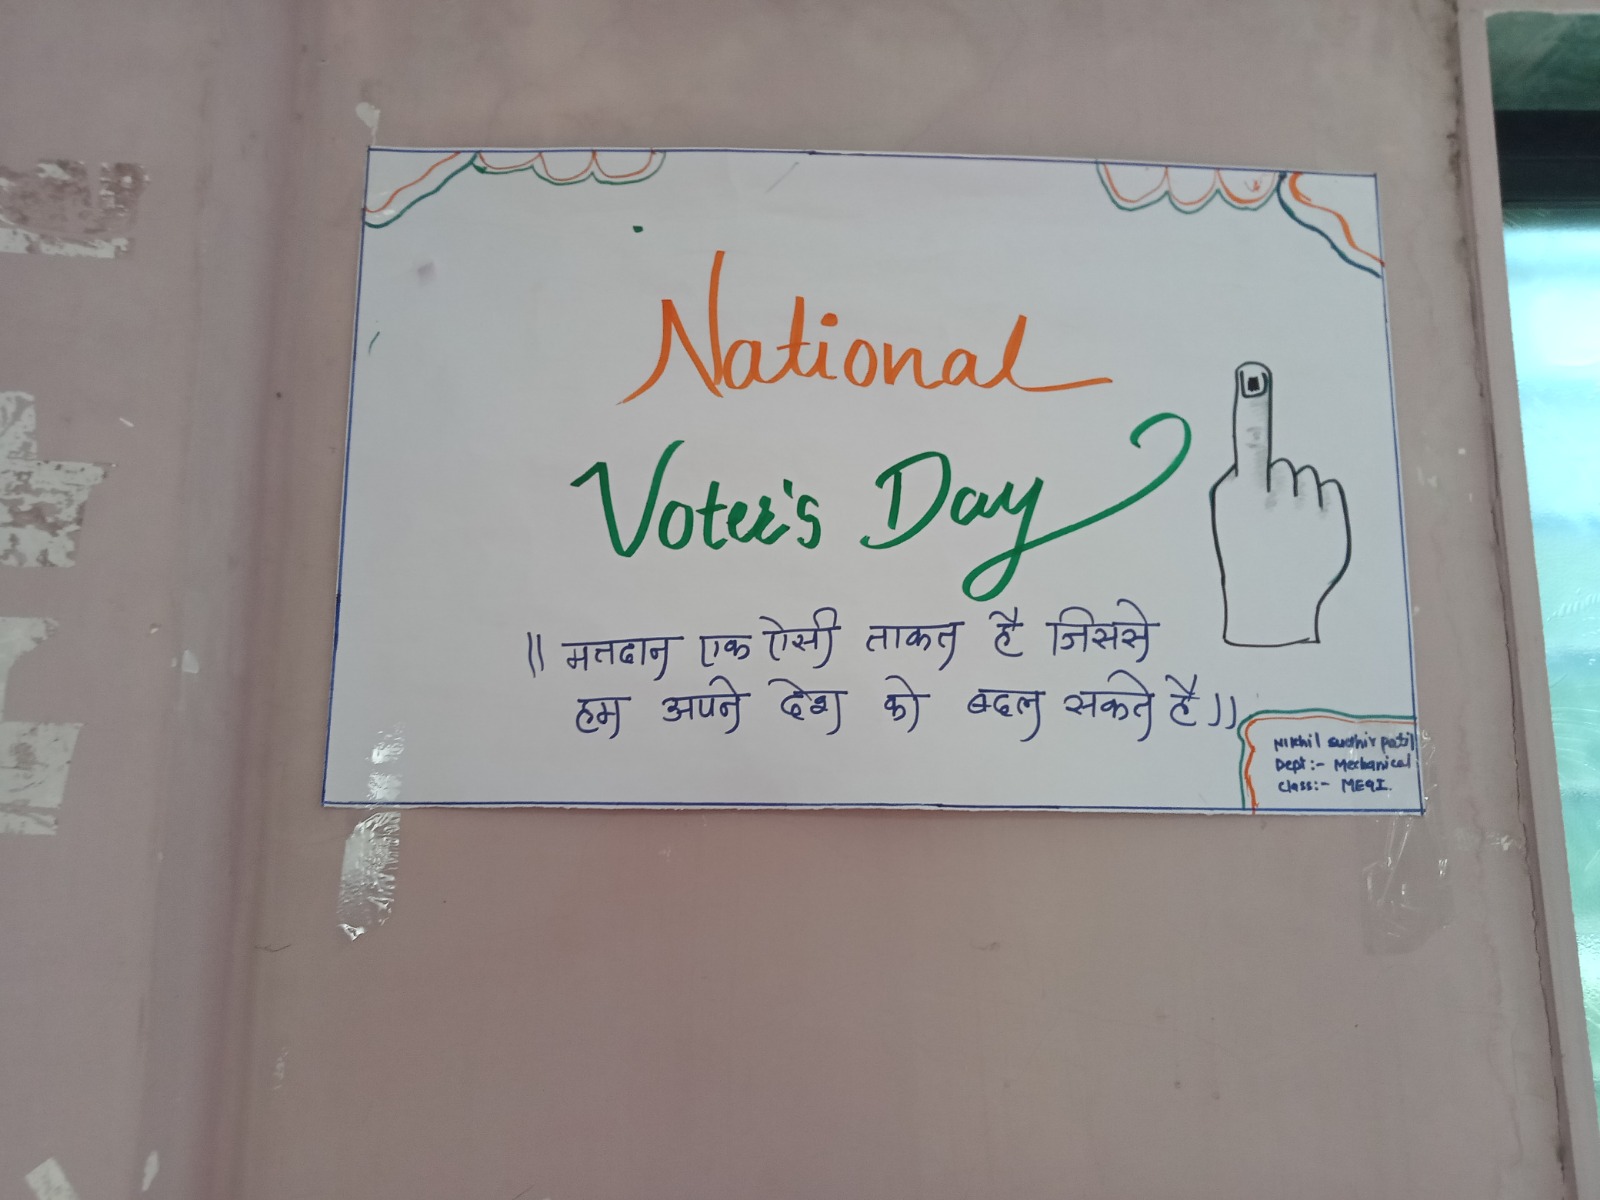 National
Voter's Day
|| मतदान एक ऐसी ताकत है जिससे
हम अपने देश को बदल सकते है ||
Nikhil Sudhir patil
Dept:- Mechanical
Class:- ME9I.